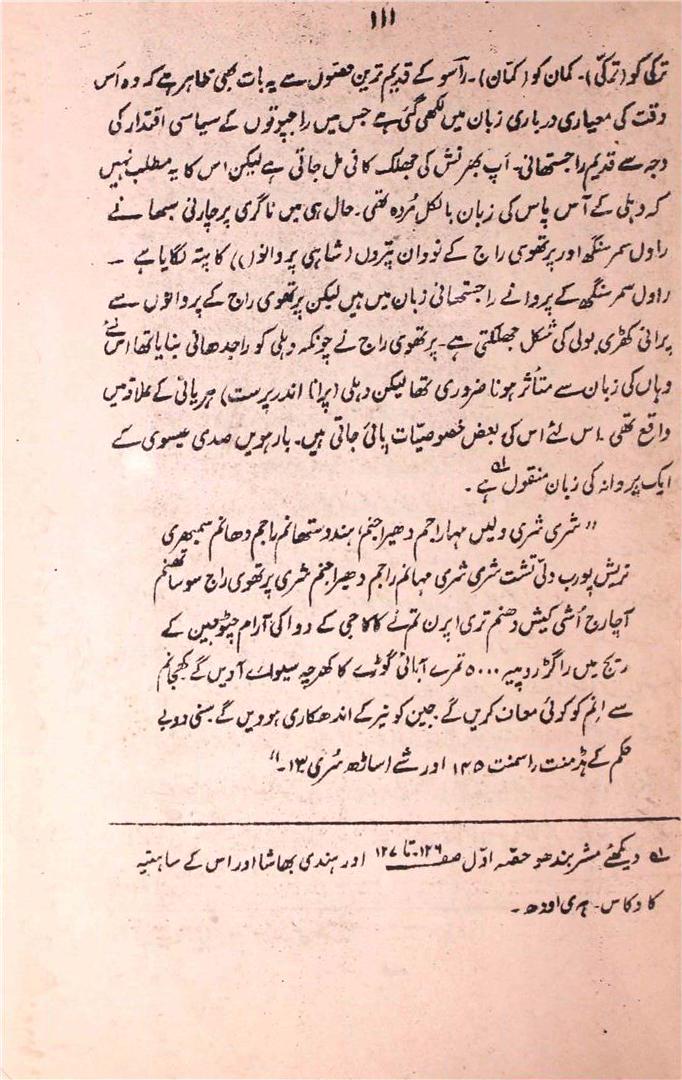 ۱۱۱
ترکی کو (ترکّی)۔ کمان کو (کمّان)۔ راسو کے قدیم ترین حصّوں سے یہ بات بھی ظاہر ہے کہ وہ اُس
وقت کی معیاری درباری زبان میں لکھی گئی ہے جس میں راجپوتوں کے سیاسی اقتدار کی
وجہ سے قدیم راجستھانی۔ اَپ بھرنش کی جھلک کافی مل جاتی ہے لیکن اس کا یہ مطلب نہیں
کہ دہلی کے آس پاس کی زبان بالکل مُردہ تھی۔ حال ہی میں ناگری پرچارنی سبھا نے
راول سمر سنگھ اور پرتھوی راج کے نو دان پتروں (شاہی پروانوں) کا پتہ لگایا ہے۔
راول سمر سنگھ کے پروانے راجستھانی زبان میں ہیں لیکن پرتھوی راج کے پروانوں سے
پرانی کھڑی بولی کی شکل جھلکتی ہے۔ پرتھوی راج نے چونکہ دہلی کو راجدھانی بنایا تھا اس لئے
وہاں کی زبان سے متأثر ہونا ضروری تھا لیکن دہلی (پرانا اندر پرست) ہریانی کے علاقہ میں
واقع تھی۔ اس لئے اس کی بعض خصوصیّات پائی جاتی ہیں۔ بارھویں صدی عیسوی کے
ایک پروانہ کی زبان منقول ہے ۱؎۔
"شری شری دلیس مہاراجم دھیراجنم، ہندوستھانم راجم دھانم سمبھری
نریش پورب دلّی تشت شری شری مہانم راجم دھیراجنم شری پرتھوی راج سوساتھنم
آچارج اُشی کیش دھنم تری اپرن تم نے کاکا جی کے دوا کی آرام چتوٗجین کے
ریج میں راگڑ روپیہ ۵۰۰۰ تمرے آہانی گوڑے کا کھرچہ سیوائے آویں گے کھجانم
سے انم کو کوئی معان کریں گے جین کو نیر کے اندھکاری ہوویں گے سنی دوبے
حکم کے ہڈمنت راسمنت ۱۴۵ اور شے اساڑھ سُری ۱۳۔"
۱؎ دیکھئے مشر بندھو حصّہ اوّل صفحہ ۱۲۶ تا ۱۲۷ اور ہندی بھاشا اور اس کے ساہتیہ
کا وکاس۔ ہری اودھ۔